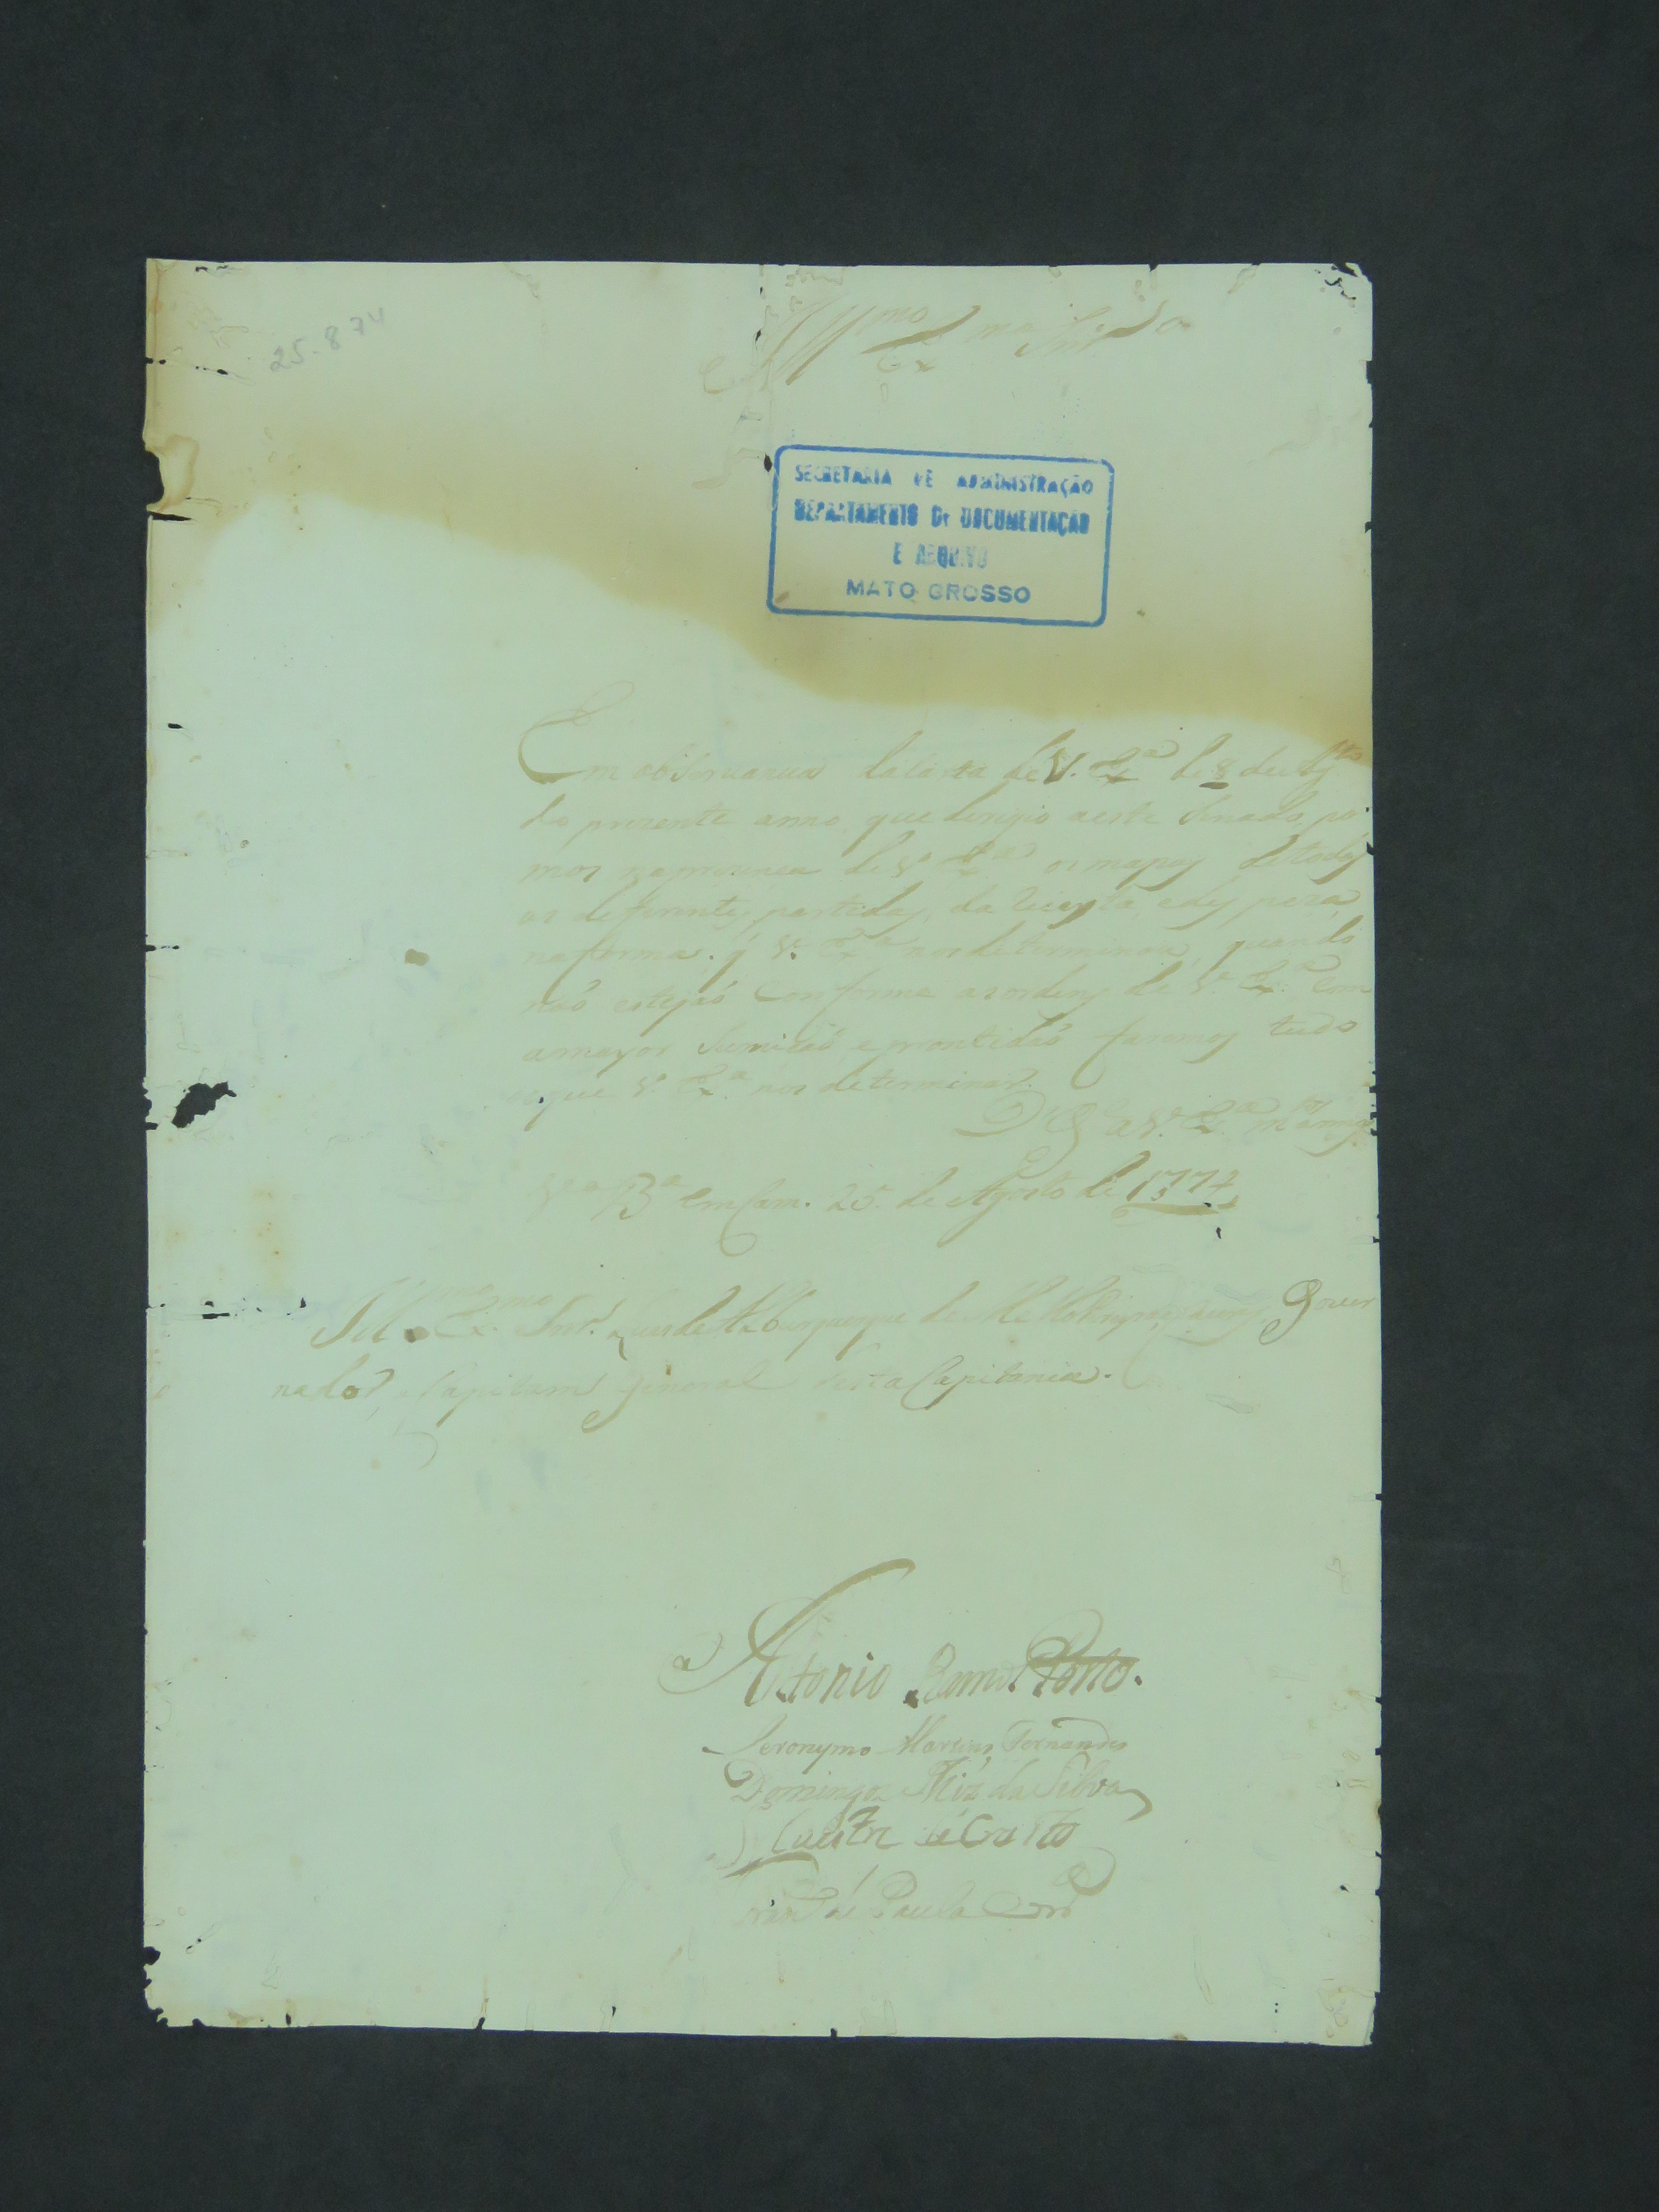 25.8 74
Ill.mo e Ex.mo Snr.
SECRETARIA DE ADMINISTRAÇÃO
DEPARTAMENTO DE DOCUMENTAÇÃO
E ARQUIVO
MATO GROSSO
Em observancia da carta de V. Ex.a de 8 de
do prezente anno que derigio aeste Senado, po
mos naprezença de V. Ex.a os mapas de todas
as deferentes partidas, da Receyta edespeza,
naforma. q̃ V. Ex.a nos determinou, quando
naõ estejaõ Conforme as ordens de V. Ex.a Com
amayor e promtidaõ faremos tudo
oque V. Ex.a nos determinar.
D.s G.e a V. Ex.a m.s annos
V.a B.a em Cam. 25 de Agosto de 1774
Ill.mo Ex.mo Snr. Luis de Albuquerque de Mello Pereyra Gover
nador, e Capitam General desta Capitania.
Antonio Porto.
Jeronymo Martins Fernandes
Domingos da Silva
Silvestre
de Paula